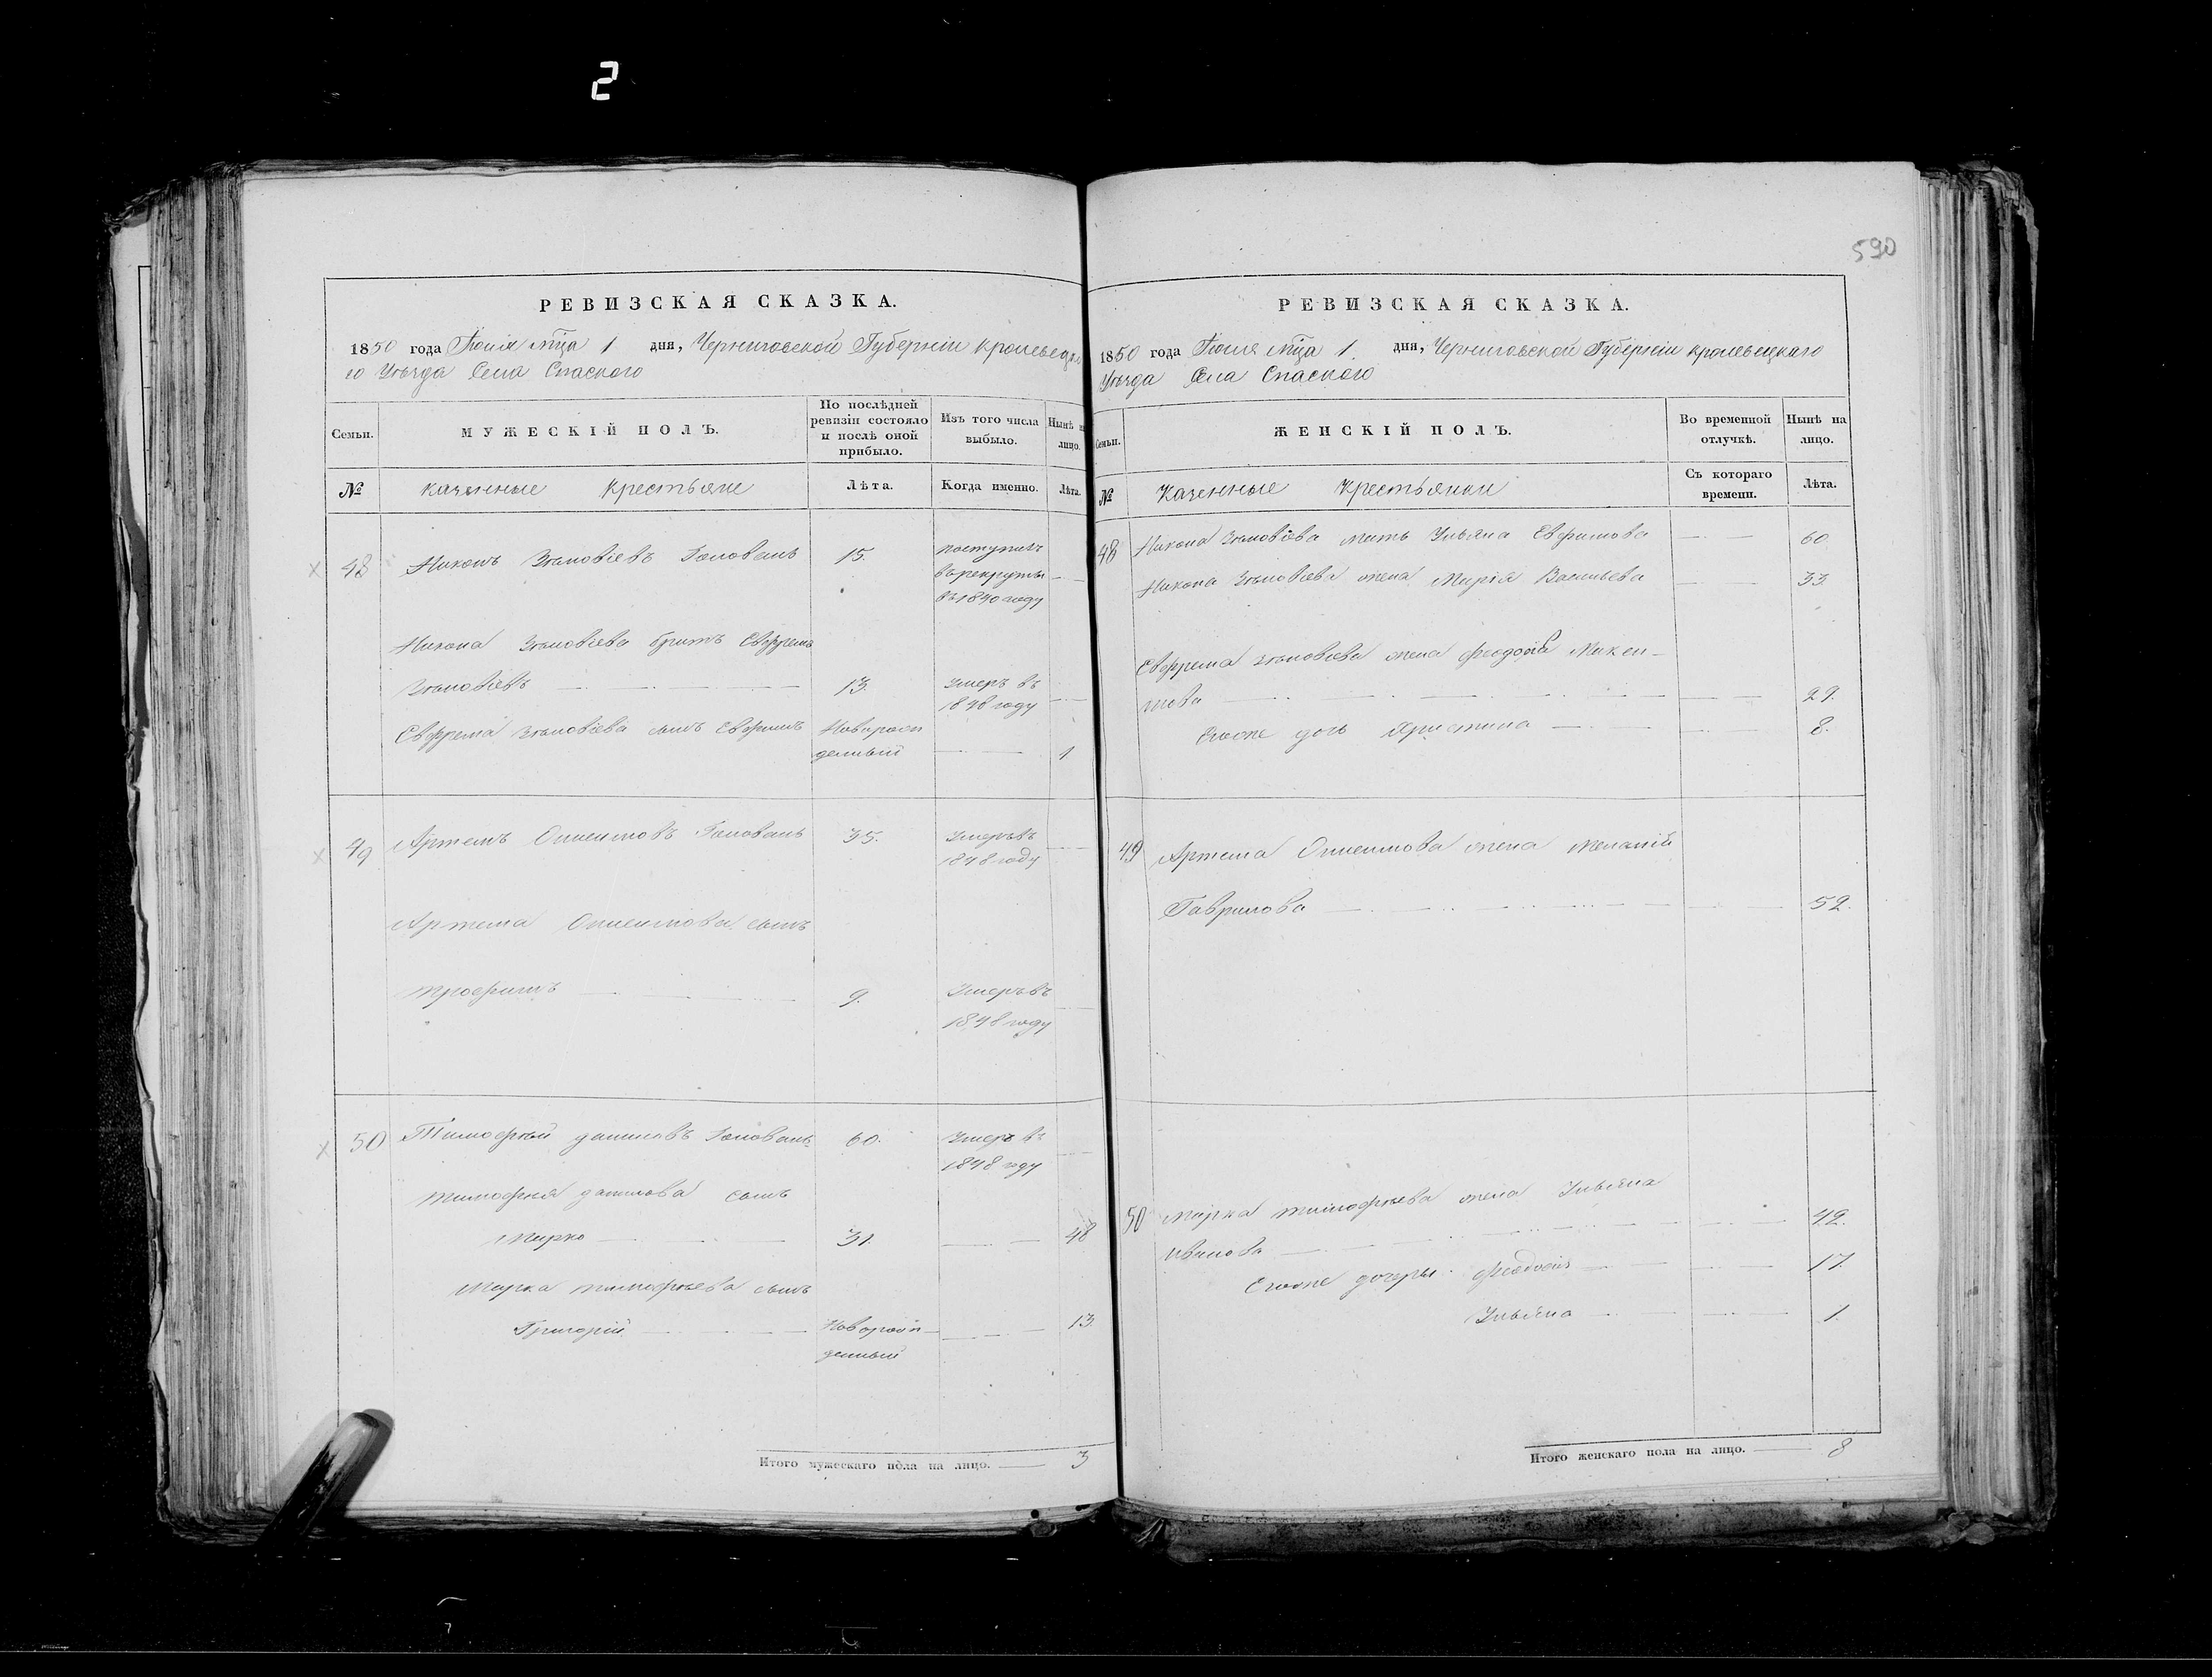 2
590
РЕВИЗСКАЯ СКАЗКА.
1850 года Іюня мца 1 дня, Черниговской Губерніи Кролевецка
го Уѣзда Села Спаского
Семьи.
МУЖЕСКІЙ ПОЛЪ.
По послѣдней ревизіи состояло и послѣ оной прибыло.
Изъ того числа выбыло.
Нынѣ на лицо.
№
Казенные Крестьяне
Лѣта.
Когда именно.
Лѣта.
48 Никонъ Зѣновіевъ Головань 15. поступилъ
в рекруты
въ 1840 году
Никона Зѣновіева братъ Евфремъ
Зѣновіевъ 13. Умеръ въ
1848 году
Евфрема Зѣновіева сынъ Евфимъ Новорож
денный 1
49 Артемъ Онисимовъ Головань 35. Умеръ въ
1848 году
Артема Онисимова сынъ
Трофимъ 9. Умеръ въ
1848 году
50 Тимофѣй Даниловъ Головань 60. Умеръ въ
1848 году
Тимофея Данилова сынъ
Марко 31. 48
Марка Тимофѣева сынъ
Григорій Новорож
денный 13
Итого мужескаго пола на лицо. 3
РЕВИЗСКАЯ СКАЗКА.
1850 года Іюня мца 1 дня, Черниговской Губерніи Кролевецкаго
Уѣзда Села Спаского
Семьи.
ЖЕНСКІЙ ПОЛЪ.
Во временной отлучкѣ.
Нынѣ на лицо.
№
Казенные Крестьянки
Съ котораго времени.
Лѣта.
48 Никона Зѣновіева мать Ульяна Евфимова 60.
Никона Зѣновіева жена Марія Васильева 33.
Евфрема Зѣновіева жена Феодосія Микен-
това 29.
Егоже дочь Христина 8.
49 Артема Онисимова жена Меланія
Гаврилова 52.
50 Марка Тимофѣева жена Ульяна
Иванова 42.
Егоже дочеры Феодосія 17.
Ульяна 1.
Итого женскаго пола на лицо. 8